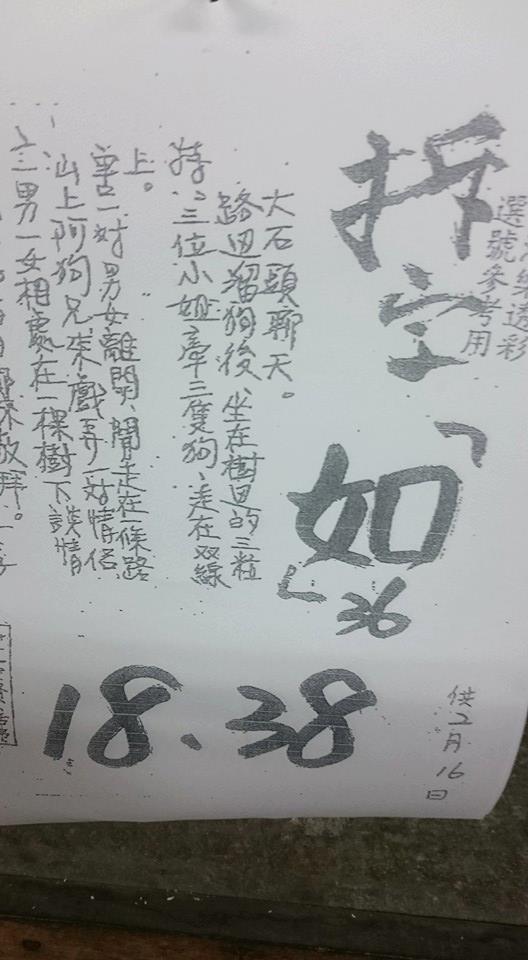 樂透彩
選號參考用
拆字「如」
36
18、38
供2月16日
三男一女相處在一棵樹下談情
山上阿狗兄來戲弄一對情侶
害一對男女離開、閒走在一條路
上。
三位小姐牽三隻狗、走在双線
路边溜狗後、坐在樹边的三粒
大石頭聊天。